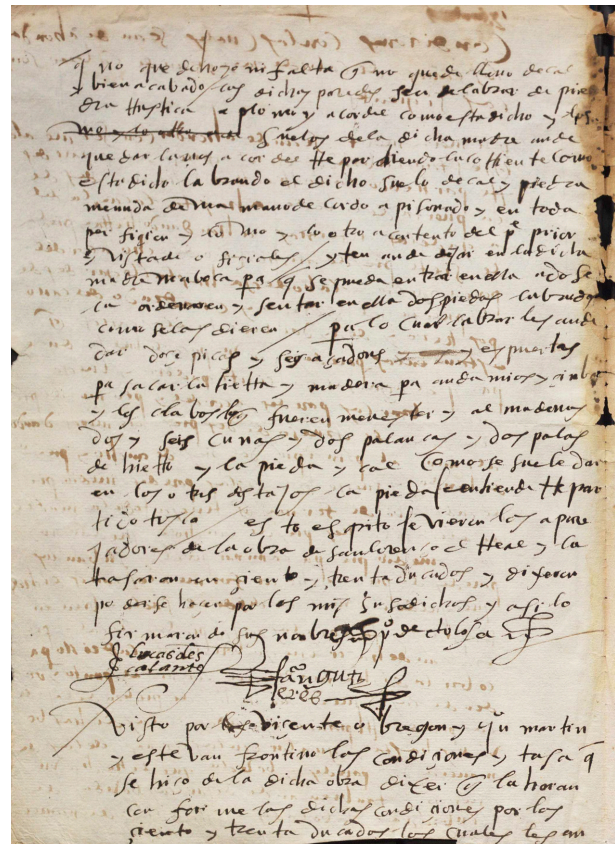 q no que de hoyo ni falta q no quede lleno de cal
y bien acabado / las dichas paredes sea de labrar de pie
dra Rustica a plomo y a cordel como esta dicho y los
suelos de la dicha madre an de
quedar a cordel
esta dicho labrando el dicho suelo de cal y piedra
menuda de una mano de cordo a pisonado y en toda
y lo uno y lo otro a contento del pe prior
y vista de oficiales / yten an de dejar en la dicha
madre una boca pa q se pueda entrar en ella a do se
la ordenaren y sentar en ella dos piedras labradas
como se las dieren / pa lo cual labrar les an de
dar doze picos y seis açadones y espuertas
pa sacar la tierra y madera pa andamios y
y los clabos q fueren menester y al madenas
dos y seis cunas y dos palancas y dos palas
de hierro y la piedra y cal como se suele dar
en los otros destajos la piedra se entienda
tico tosco esto es pito se vieron los apare
jadores de la obra de san lorenço el Real y la
tasaron en ciento y trenta ducados y dixeron
poderse hacer por los mrs susodichos y asi lo
firmaron de sus nonbres po de tolosa
lucas de escalante
Juan guti
erez
Visto por Vicente obregon y Jun martin
y estevan frontino las condiciones y tasa q
se hico de la dicha obra dixeron q la haran
conforme las dichas condiciones por los
ciento y trenta ducados los cuales les an